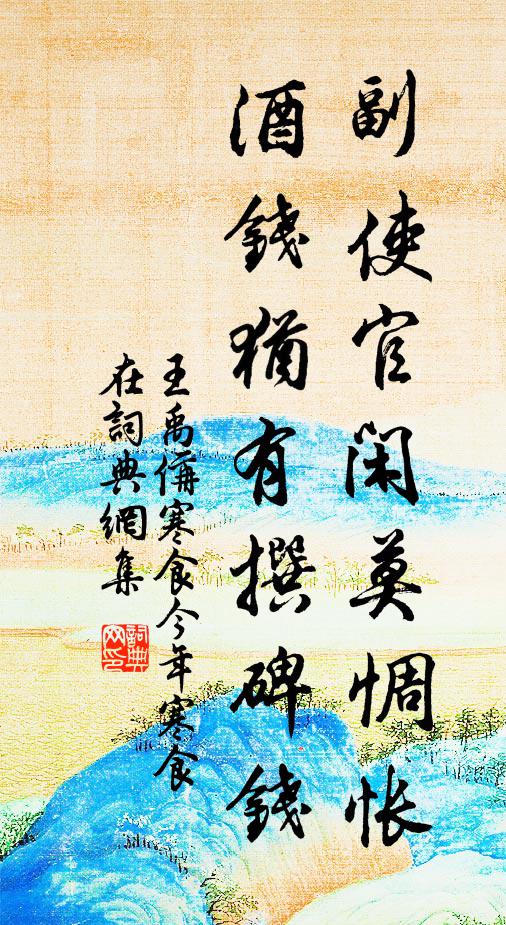 副使官闲莫惆怅
酒錢猶有撰碑錢
王禹偁寒食今年寒食
在詞典網集
詞典网印